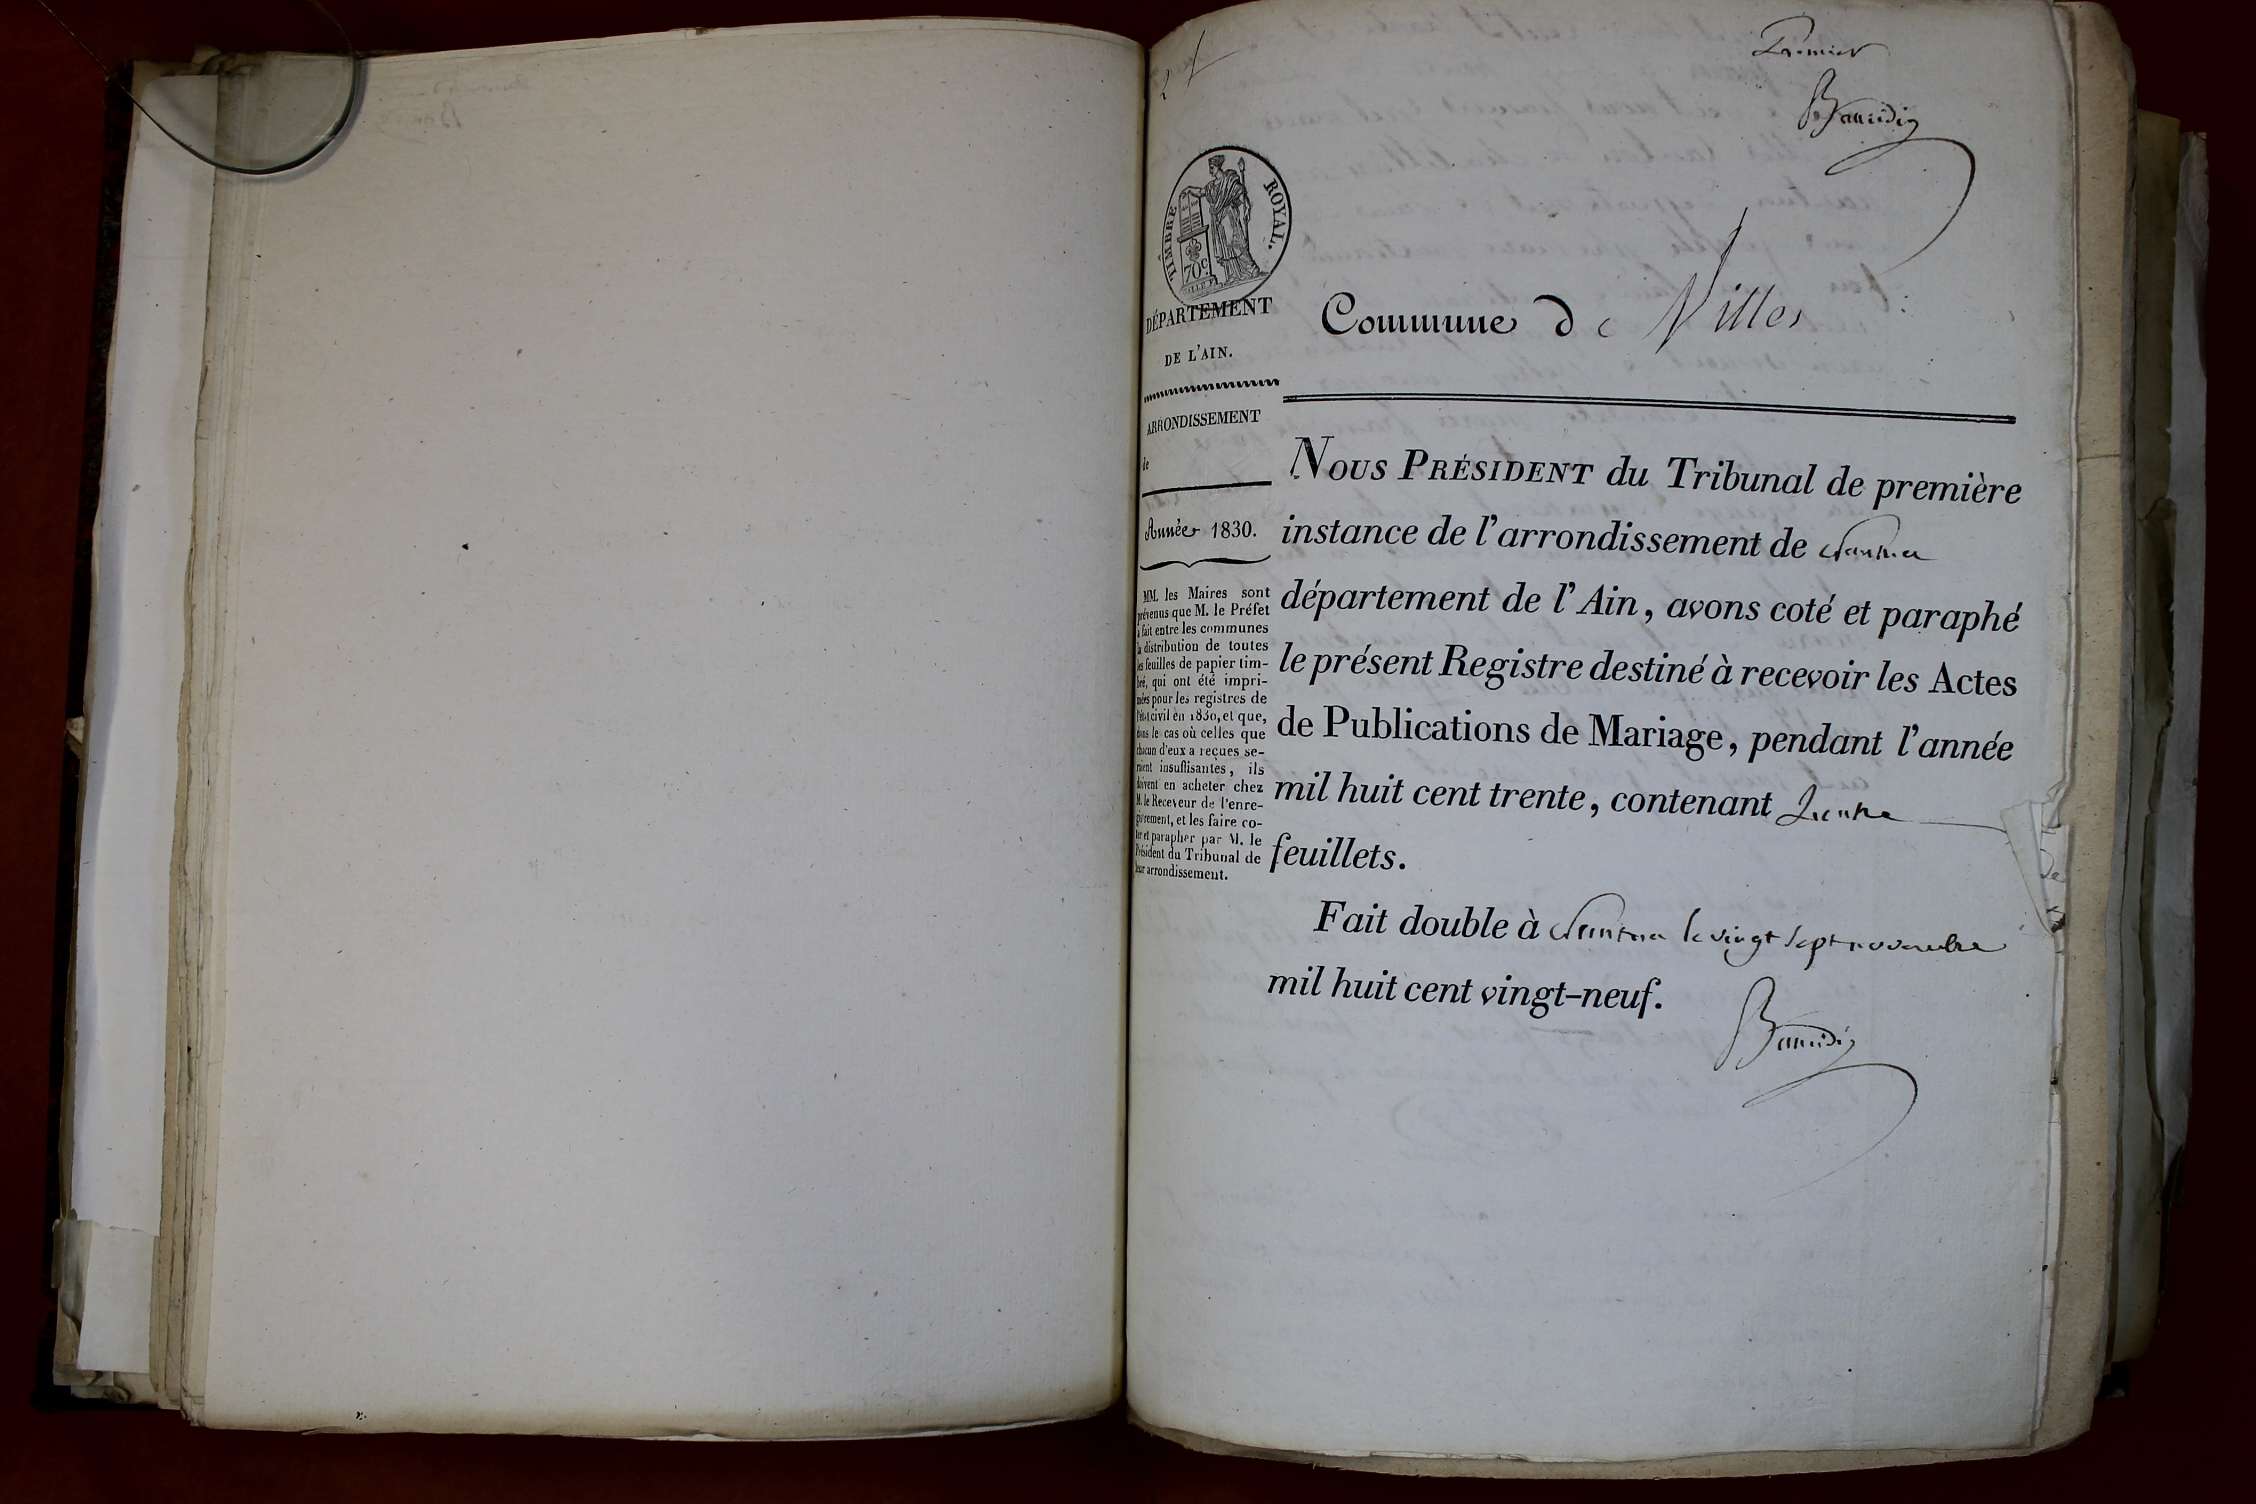 Premier
Baudin
TIMBRE ROYAL.
70c
DÉPARTEMENT
DE L'AIN.
ARRONDISSEMENT
de
Année 1830.
MM. les Maires sont
prévenus que M. le Préfet
a fait entre les communes
la distribution de toutes
les feuilles de papier tim-
bré, qui ont été impri-
mées pour les registres de
l'état civil en 1830, et que,
dans le cas où celles que
chacun d'eux a reçues se-
raient insuffisantes, ils
doivent en acheter chez
M. le Receveur de l'enre-
gistrement, et les faire co-
ter et parapher par M. le
Président du Tribunal de
leur arrondissement.
Commune de Villes
NOUS PRÉSIDENT du Tribunal de première
instance de l'arrondissement de Nantua
département de l'Ain, avons coté et paraphé
le présent Registre destiné à recevoir les Actes
de Publications de Mariage, pendant l'année
mil huit cent trente, contenant
feuillets.
Fait double à Nantua le vingt sept novembre
mil huit cent vingt-neuf.